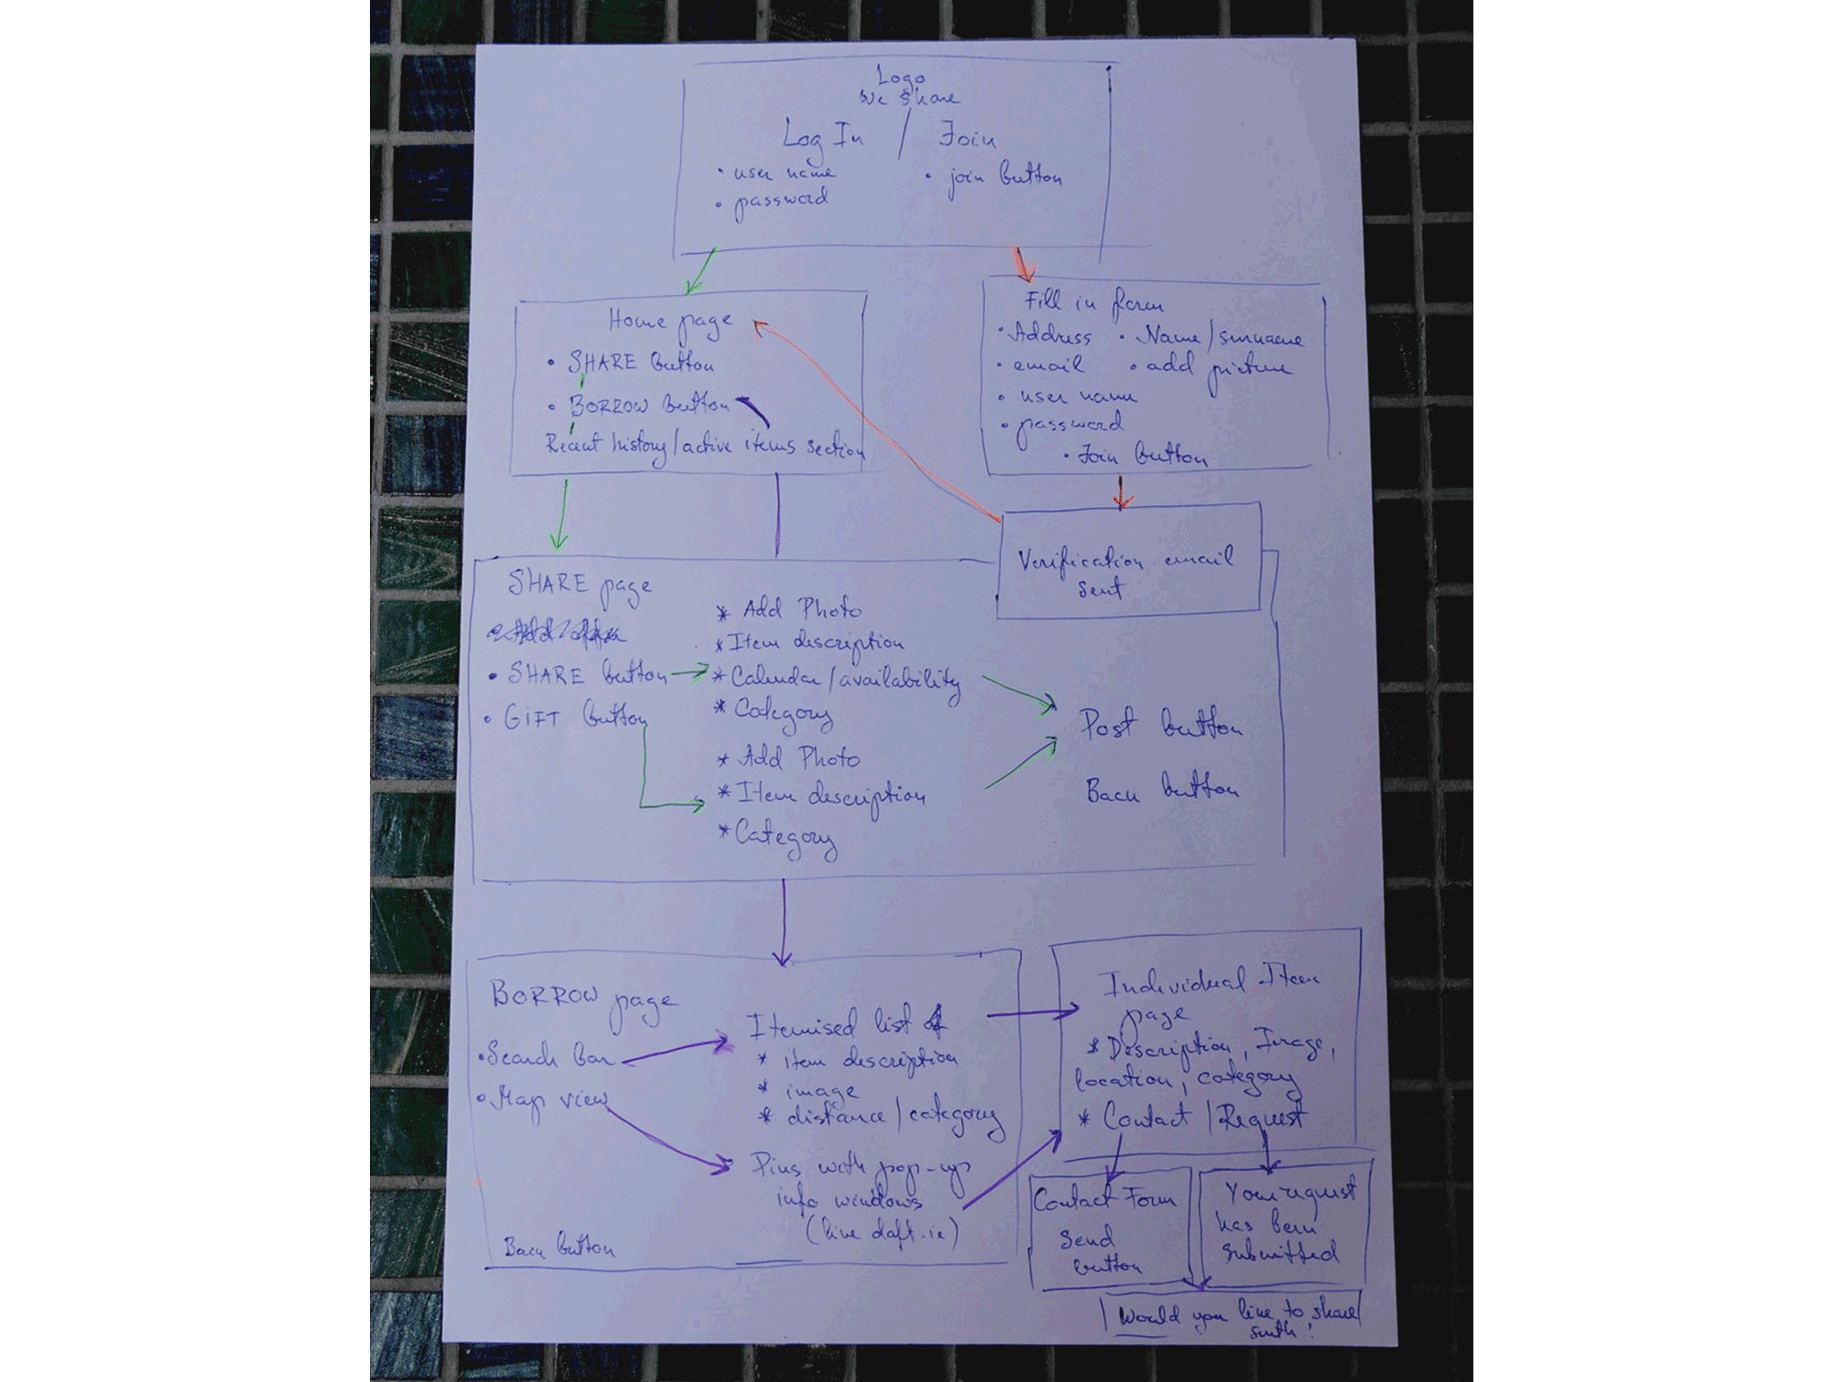 Logo
We Share
Log In / Join
• user name
• password
• join button
Home page
• SHARE button
• BORROW button
Recent history/active items section
Fill in form
• Address • Name/surname
• email • add picture
• user name
• password
• Join button
Verification email
sent
SHARE page
• SHARE button
• GIFT button
* Add Photo
* Item description
* Calendar/availability
* Category
* Add Photo
* Item description
* Category
Post button
Back button
BORROW page
• Search bar
• Map view
Itemised list of
* item description
* image
* distance/category
Pins with pop-up
info windows
(like daft.ie)
Back button
Individual Item
page
* Description, Image,
location, category
* Contact/Request
Contact Form
Send
button
Your request
has been
submitted
Would you like to share
smth?